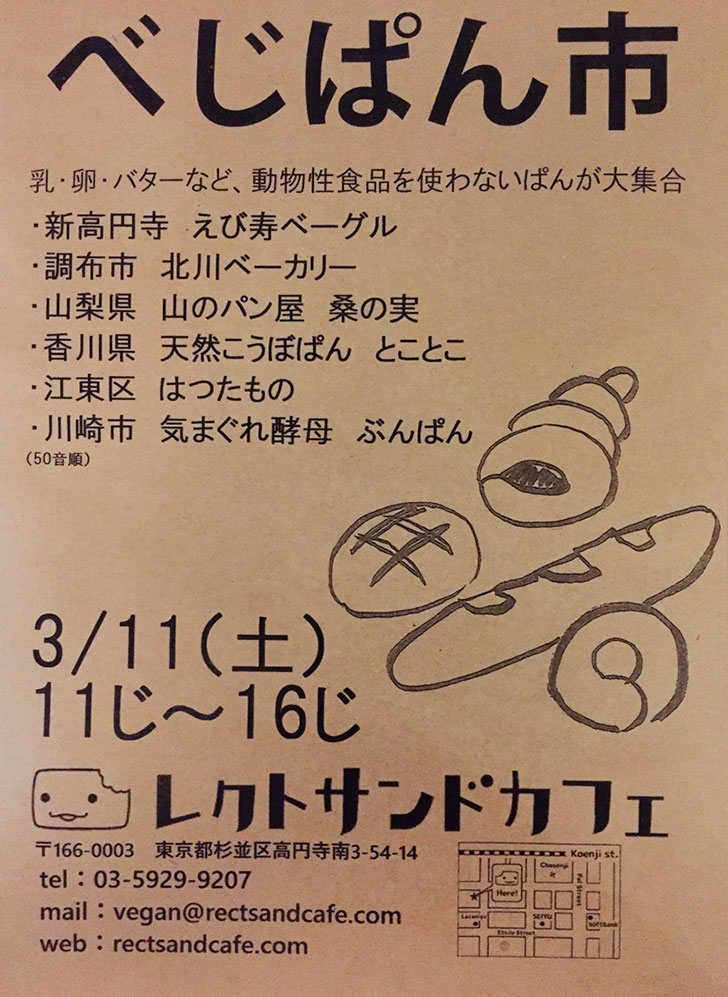 べじぱん市
乳・卵・バターなど、動物性食品を使わないぱんが大集合
・新高円寺　えび寿ベーグル
・調布市　北川ベーカリー
・山梨県　山のパン屋　桑の実
・香川県　天然こうぼぱん　とことこ
・江東区　はつたもの
・川崎市　気まぐれ酵母　ぶんぱん
（50音順）
3/11（土）
11じ～16じ
レクトサンドカフェ
〒166-0003　東京都杉並区高円寺南3-54-14
tel：03-5929-9207
mail：vegan@rectsandcafe.com
web：rectsandcafe.com
Koenji st.
Chosenji
Here!
Pal Street
SEIYU
Softbank
Etoile Street